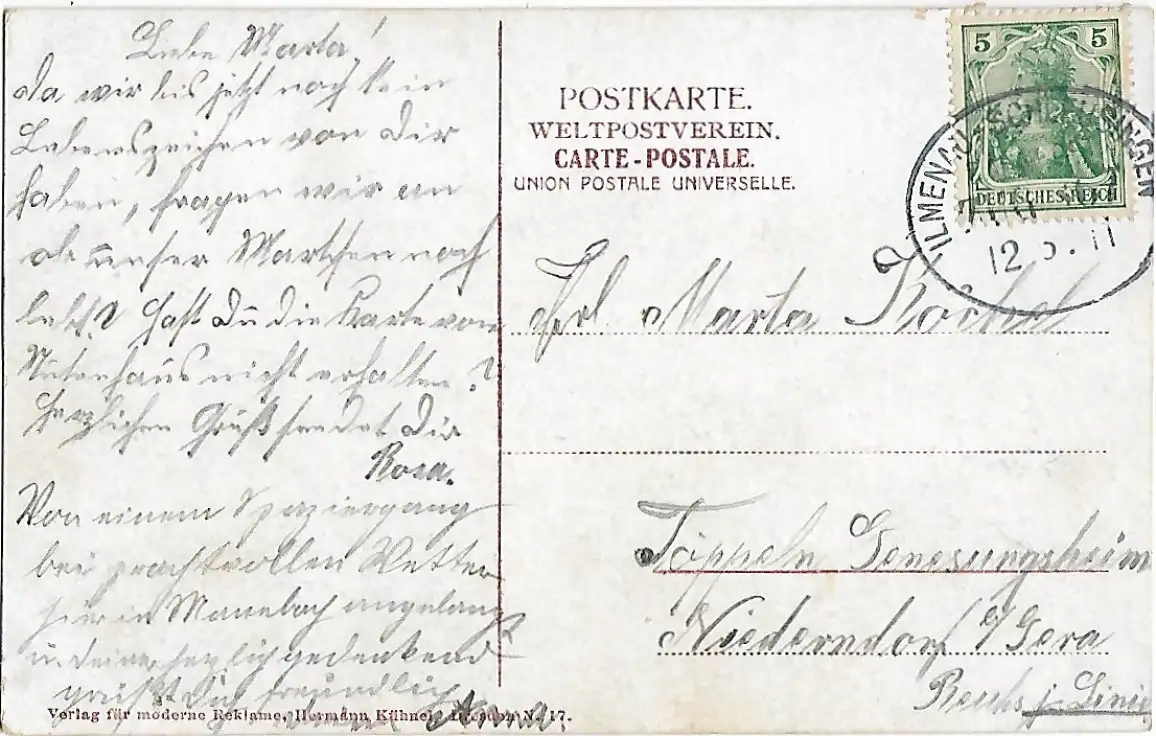 Liebe Marta!
da wir bis jetzt noch kein
Lebenszeichen von Dir
haben, fragen wir an
ob unser Martchen noch
lebt? Hast Du die Karte vom
nicht erhalten?
Herzlichen Gruß sendet Dir
Rosa.
Von einem Spaziergang
bei prachtvollen Wetter
hier in Manebach angelangt
u. Deiner herzlich gedenkend
grüßt Dich freundlich
Anna.
Verlag für moderne Reklame, Hermann Kühnel, Dresden N. 17.
POSTKARTE.
WELTPOSTVEREIN.
CARTE-POSTALE.
UNION POSTALE UNIVERSELLE.
5 5
DEUTSCHES REICH
ILMENAU-
12.5.11
Frl. Marta
Töppeln Genesungsheim
Niederndorf b/Gera
Reuß j. Linie